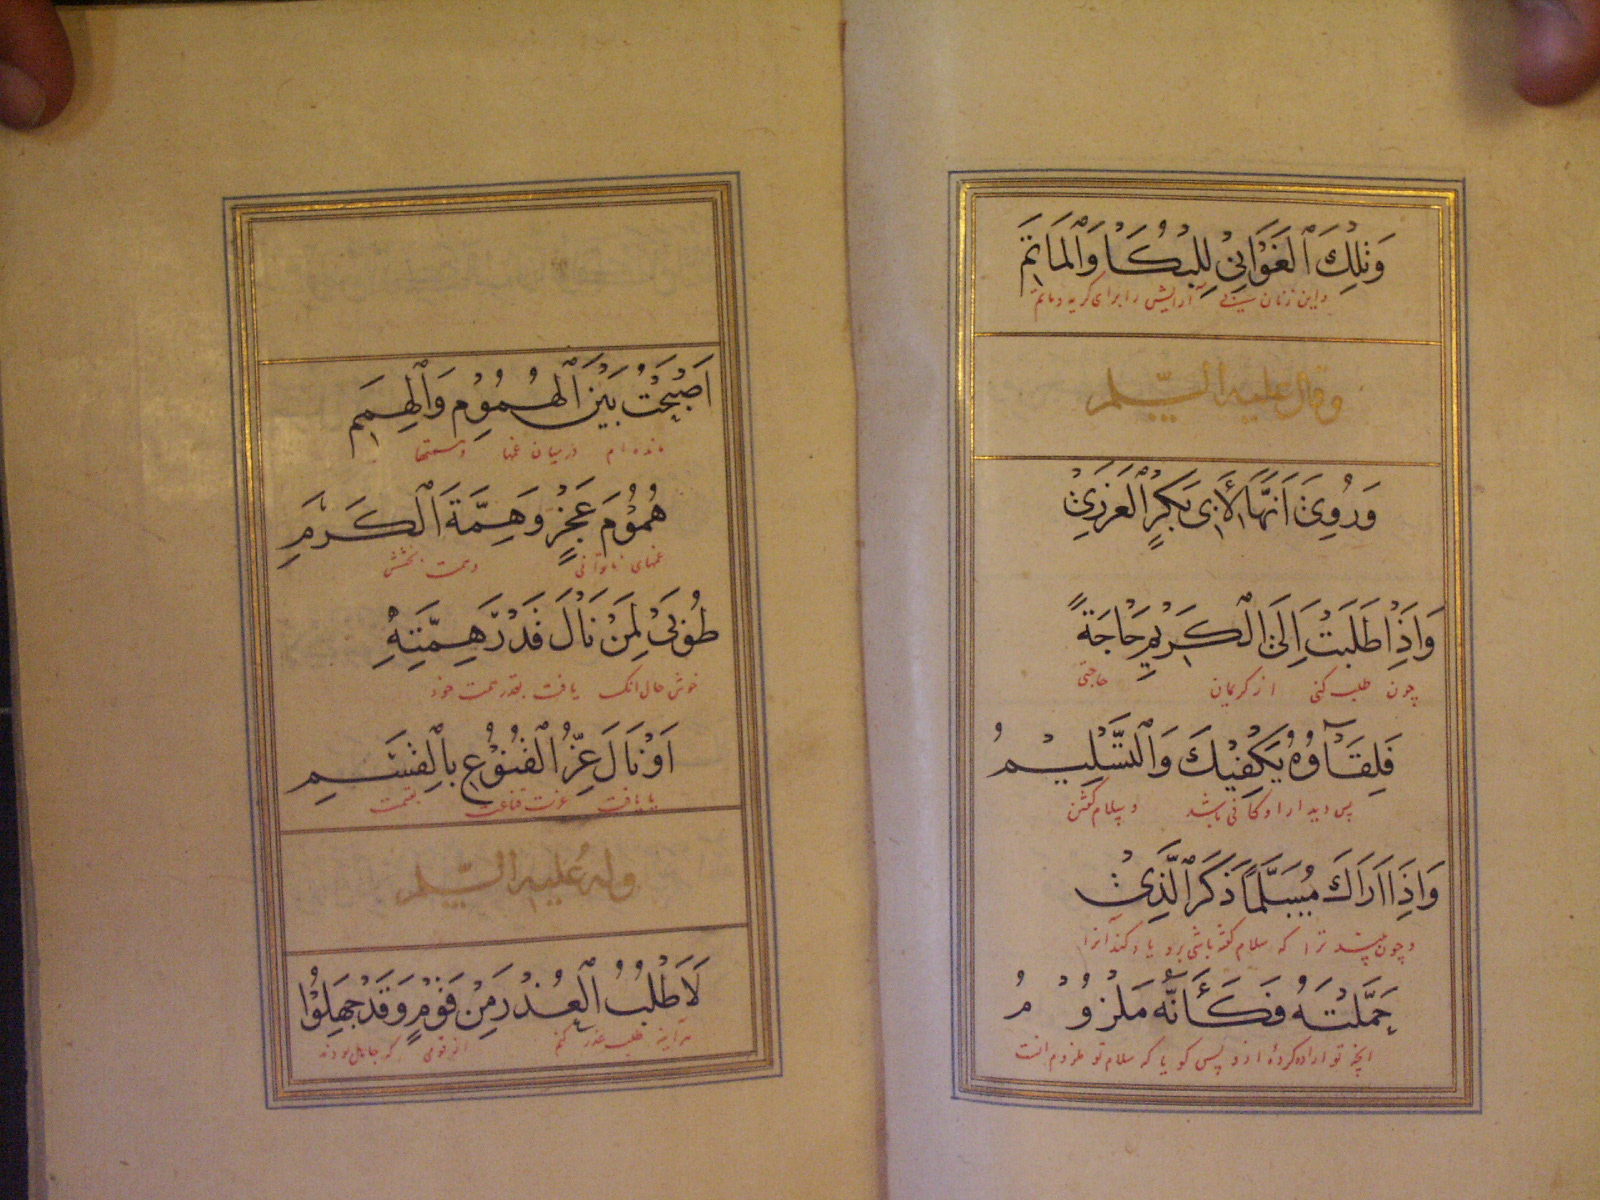 وَتِلْكَ ٱلْغَوَانِیْ لِلْبُكَا وَٱلْمَاتَمِ
و این زنان را برای گریه و ماتم
وقال علیه السّلم
وَرُوِیَ اَنَّهَا لِاَبِی بَكْرٍ الْعَرْزَمِیْ
وَاِذَا طَلَبْتَ اِلَی الْكَرِیْمِ حَاجَةً
چون طلب کنی از کریمان حاجتی
فَلِقَآؤُهُ یَكْفِیْكَ وَالتَّسْلِیْمُ
پس دیدار او کافی باشد و سلام گفتن
وَاِذَا رَاٰكَ مُسَلِّمًا ذَكَرَ الَّذِیْ
و چون ترا که سلام گفته باشی برو یاد کند آنرا
حَمَّلْتَهُ فَكَأَنَّهُ مَلْزُوْمُ
آنچه تو اراده کرده از و پس گویا که سلام تو ملزوم انست
اَصْبَحْتُ بَیْنَ ٱلْهُمُوْمِ وَٱلْهِمَمِ
مانده ام در میان غمها و همتها
هُمُوْمَ عَجْزٍ وَهِمَّةَ ٱلْكَرَمِ
غمهای ناتوانی و همت بخشش
طُوْبَیٰ لِمَنْ نَالَ قَدْرَ هِمَّتِهِ
خوش حال انک یافت بقدر همت خود
اَوْ نَالَ عِزَّ الْقُنُوْعِ بِالْقِسَمِ
یا یافت عزت قناعت بقسمت
وله علیه السّلم
لَا طْلُبُ ٱلْعُذْرَ مِنْ قَوْمٍ وَقَدْ جَهِلُوْا
طلب عذر کنم از قومی که جاهل بودند